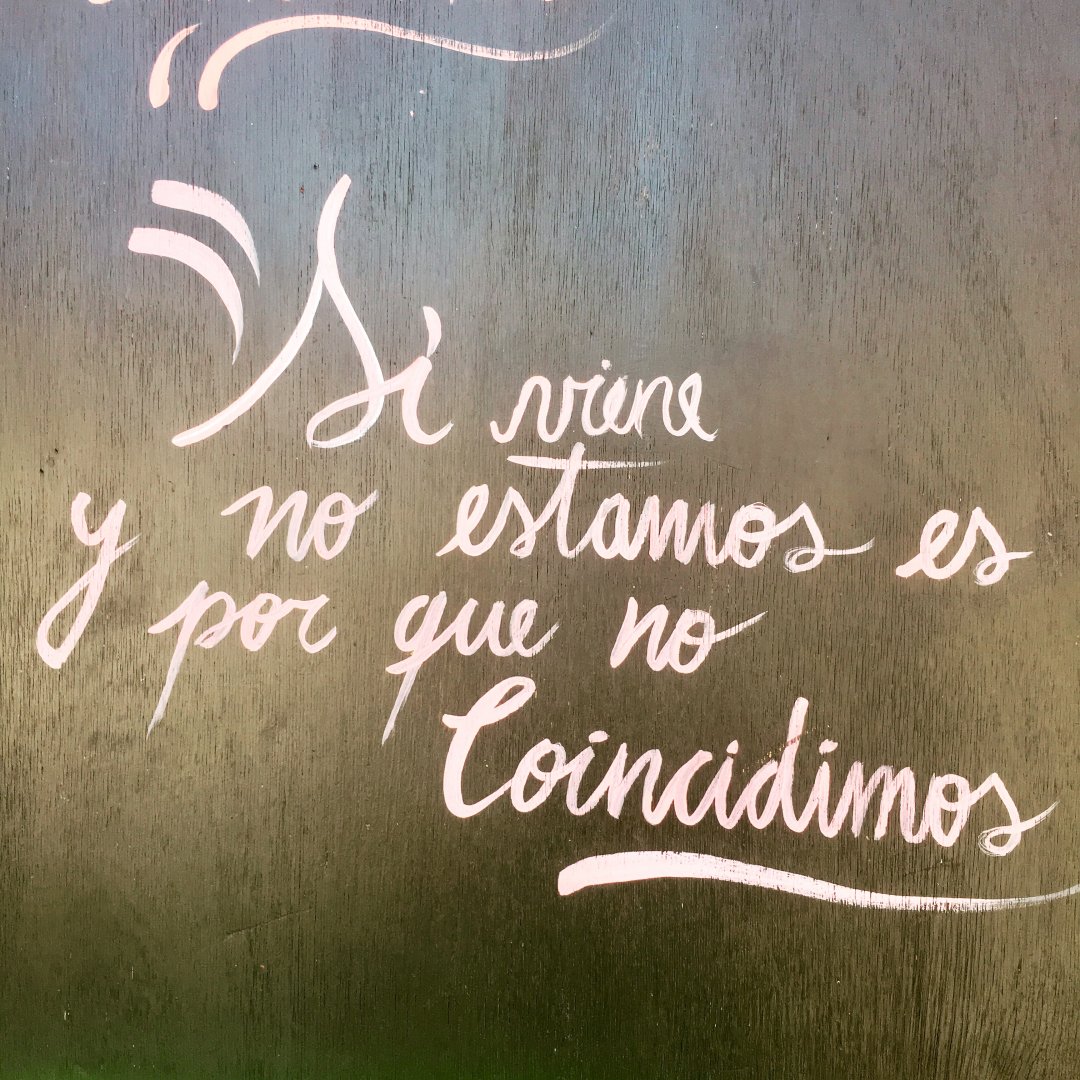 Si viene
y no estamos es
por que no
Coincidimos